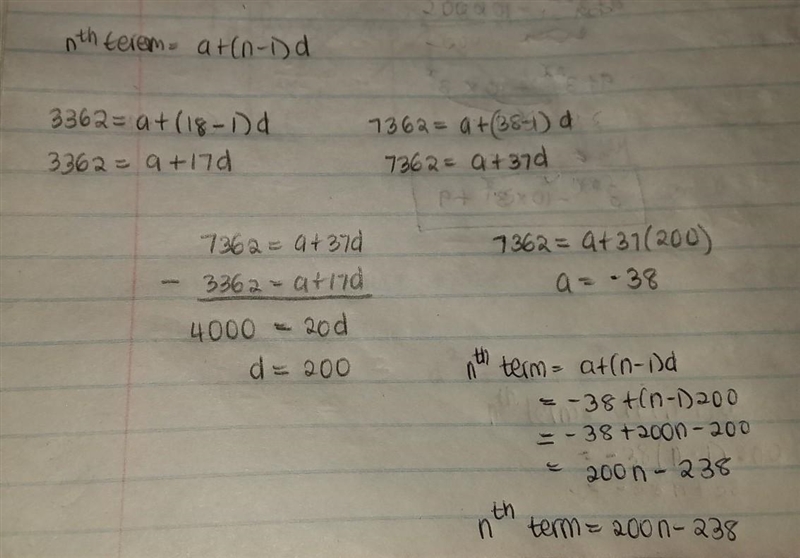 nth terem = a+(n-1)d
3362 = a+(18-1)d
3362 = a+17d
7362 = a+(38-1)d
7362 = a+37d
7362 = a+37d
- 3362 = a+17d
4000 = 20d
d = 200
7362 = a+37(200)
a = -38
nth term = a+(n-1)d
= -38+(n-1)200
= -38+200n-200
= 200n-238
nth term = 200n-238